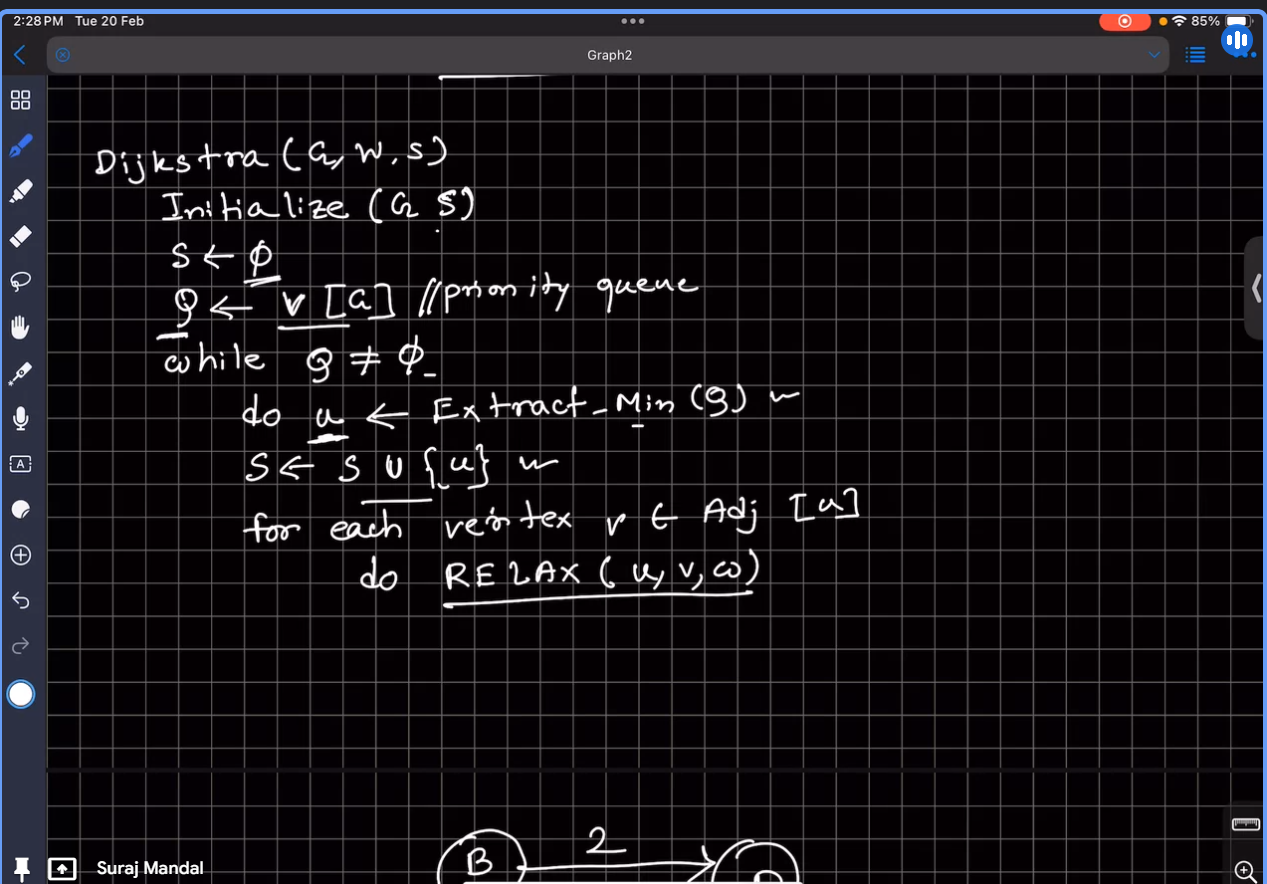 2:28 PM Tue 20 Feb
85%
Graph2
Dijkstra (G, W, S)
Initialize (G S)
S ← ϕ
Q ← V [G] // priority queue
while Q ≠ ϕ
do u ← Extract_Min (Q)
S ← S ∪ {u}
for each vertex v ∈ Adj [u]
do RELAX (u, v, w)
B 2 D
Suraj Mandal